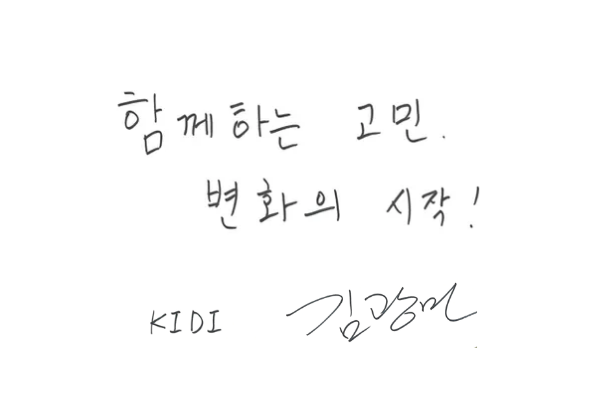 함께하는 고민.
변화의 시작!
KIDI 김광민